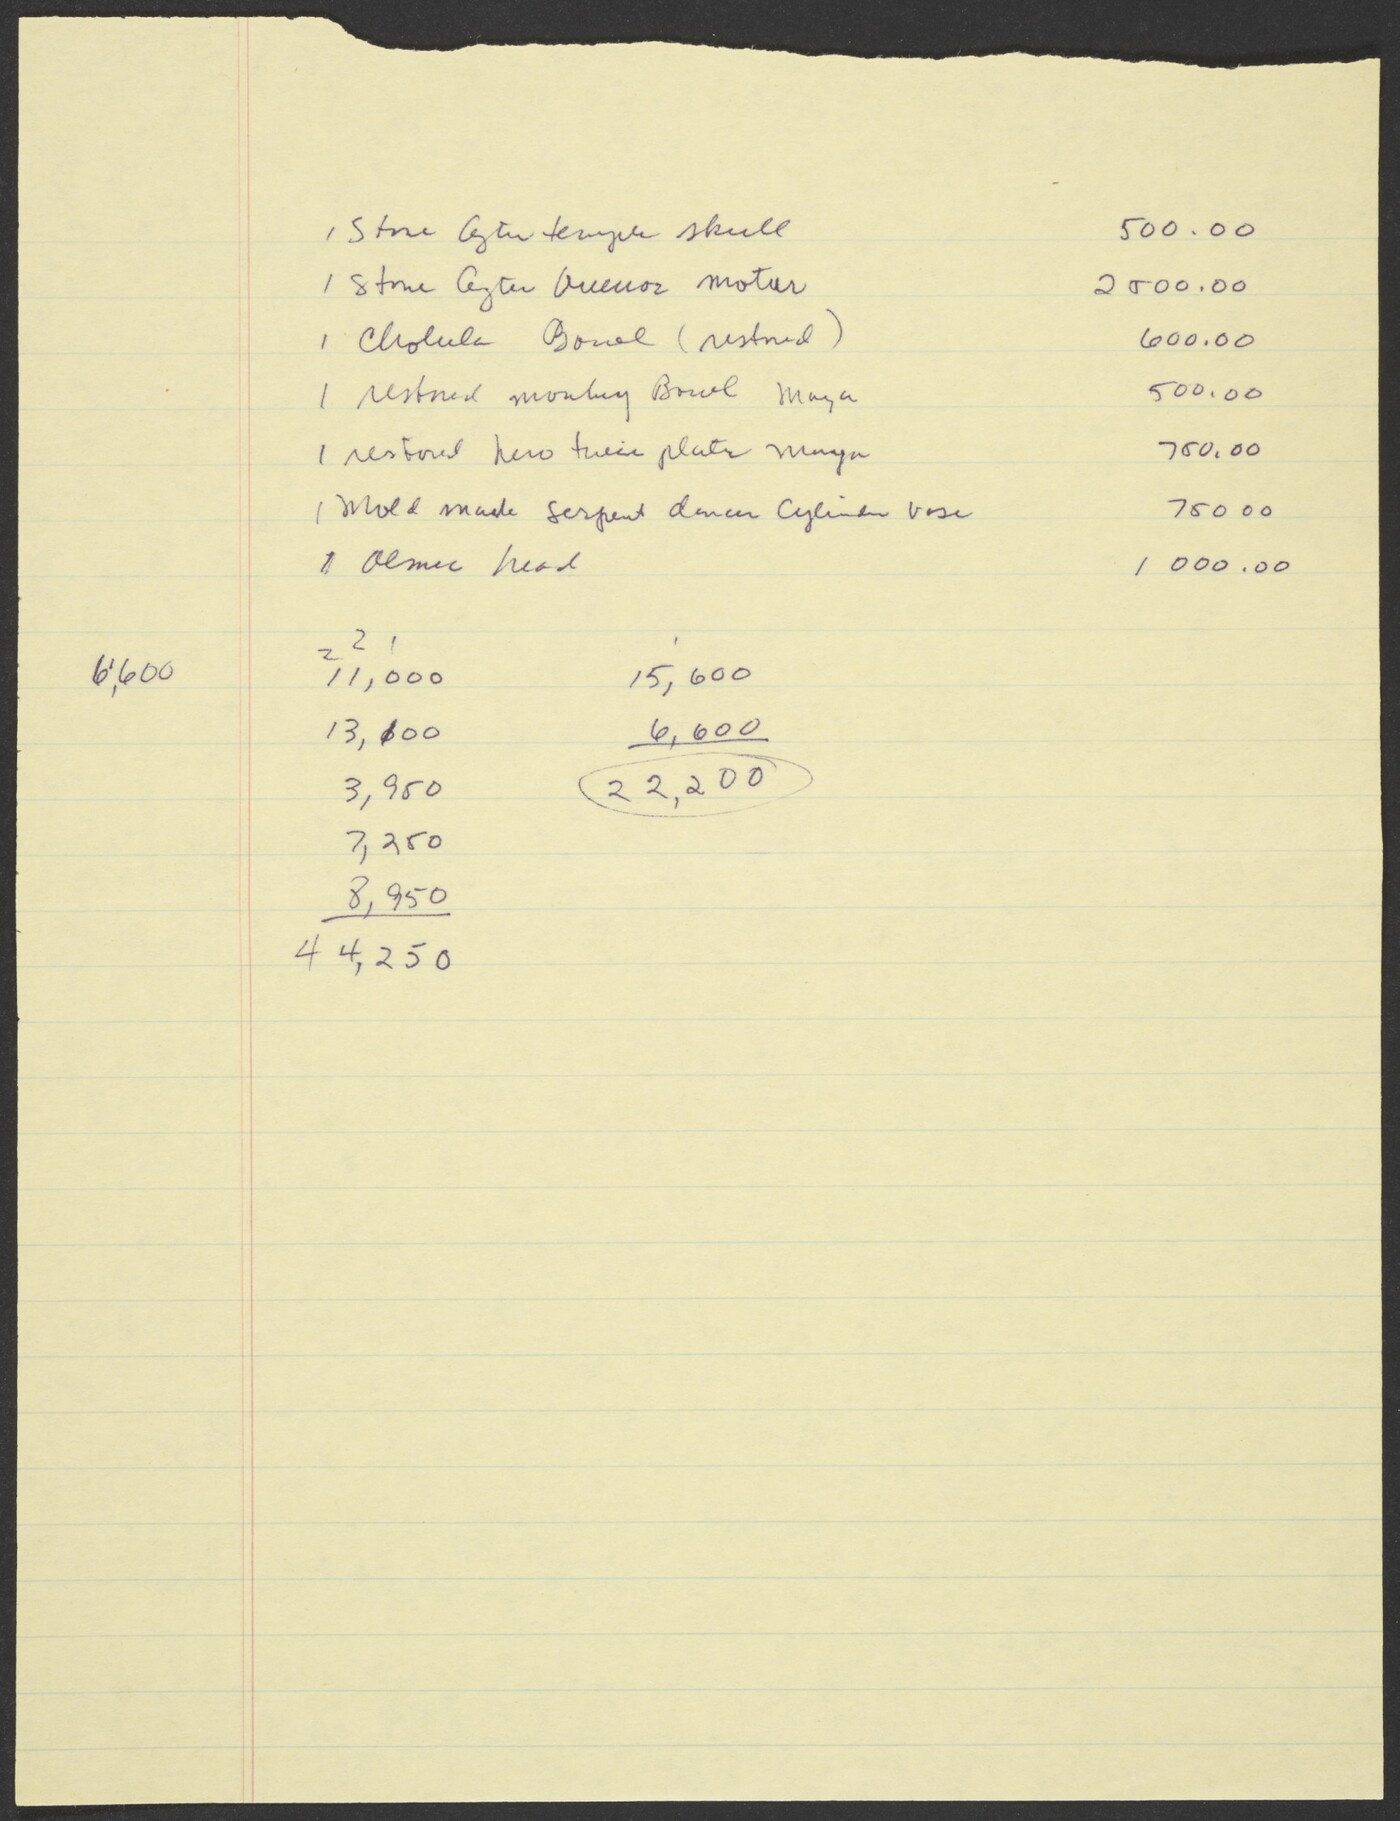 1 Stone Aztec temple skull 500.00
1 Stone Aztec motar 2500.00
1 Cholula Bowl (restored) 600.00
1 restored monkey Bowl Maya 500.00
1 restored hero twin plate Maya 750.00
1 Mold made Serpent dancer Cylinder Vase 750 00
1 Olmec head 1 000.00
2 2 1 1
6,600 11,000 15,600
13,100 6,600
3,950 22,200
7,250
8,950
44,250